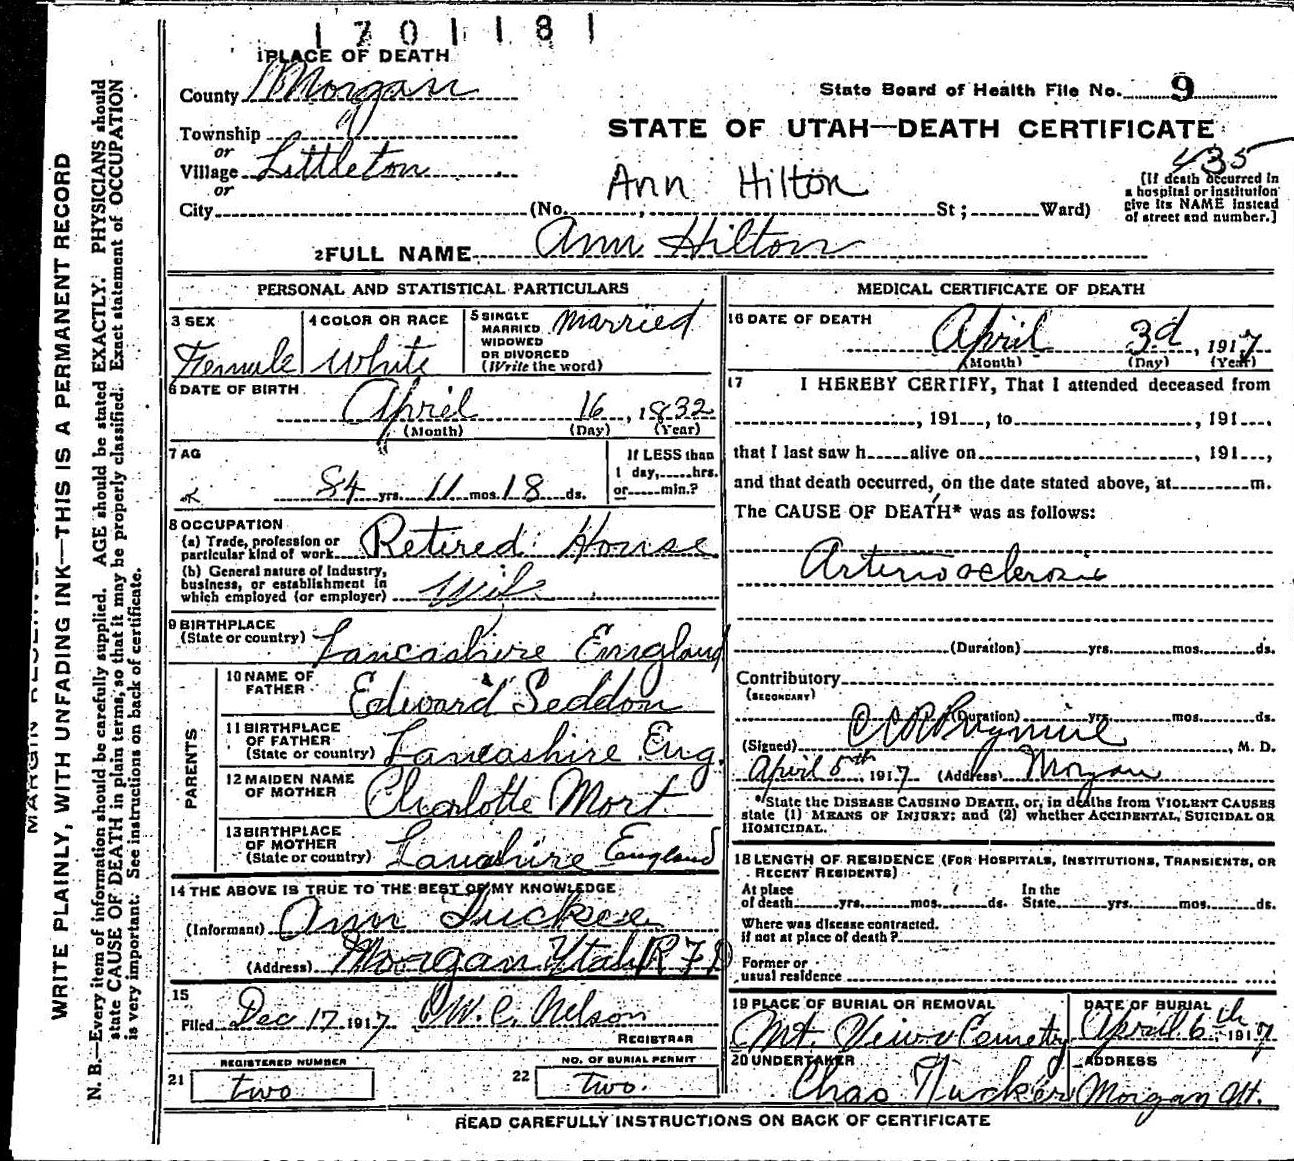 1701181
1 PLACE OF DEATH
County Morgan
State Board of Health File No. 9
Township
or
Village Littleton
or
City (No. , St ; Ward)
STATE OF UTAH—DEATH CERTIFICATE
435
Ann Hilton
[If death occurred in
a hospital or institution
give its NAME instead
of street and number.]
2 FULL NAME Ann Hilton
PERSONAL AND STATISTICAL PARTICULARS
3 SEX
Female
4 COLOR OR RACE
White
5 SINGLE
MARRIED
WIDOWED
OR DIVORCED
(Write the word)
Married
6 DATE OF BIRTH
April 16, 1832
(Month) (Day) (Year)
7 AG
84 yrs. 11 mos. 18 ds.
If LESS than
1 day, hrs.
or min.?
8 OCCUPATION
(a) Trade, profession or
particular kind of work Retired House
(b) General nature of Industry,
business, or establishment in
which employed (or employer) Wife
9 BIRTHPLACE
(State or country) Lancashire England
PARENTS
10 NAME OF
FATHER Edward Seddon
11 BIRTHPLACE
OF FATHER
(State or country) Lancashire Eng.
12 MAIDEN NAME
OF MOTHER Charlotte Mort
13 BIRTHPLACE
OF MOTHER
(State or country) Lancashire England
14 THE ABOVE IS TRUE TO THE BEST OF MY KNOWLEDGE
(Informant) Ann Tucker
(Address) Morgan Utah RFD
15
Filed Dec 17 1917 W. C. Nelson
REGISTRAR
REGISTERED NUMBER
21 two
NO. OF BURIAL PERMIT
22 two.
MEDICAL CERTIFICATE OF DEATH
16 DATE OF DEATH
April 3d, 1917
(Month) (Day) (Year)
17 I HEREBY CERTIFY, That I attended deceased from
, 191 , to , 191 ,
that I last saw h alive on , 191 ,
and that death occurred, on the date stated above, at m.
The CAUSE OF DEATH* was as follows:
Arteriosclerosis
(Duration) yrs. mos. ds.
Contributory
(SECONDARY)
(Duration) yrs. mos. ds.
(Signed) , M. D.
April 5th, 1917 (Address) Morgan
*State the DISEASE CAUSING DEATH, or, in deaths from VIOLENT CAUSES
state (1) MEANS OF INJURY; and (2) whether ACCIDENTAL, SUICIDAL OR
HOMICIDAL.
18 LENGTH OF RESIDENCE (FOR HOSPITALS, INSTITUTIONS, TRANSIENTS, OR
RECENT RESIDENTS)
At place
of death yrs. mos. ds.
In the
State yrs. mos. ds.
Where was disease contracted,
if not at place of death?
Former or
usual residence
19 PLACE OF BURIAL OR REMOVAL
Mt. View Cemetry
DATE OF BURIAL
April 6th, 1917
20 UNDERTAKER
Chas Tucker
ADDRESS
Morgan Ut.
READ CAREFULLY INSTRUCTIONS ON BACK OF CERTIFICATE
WRITE PLAINLY, WITH UNFADING INK—THIS IS A PERMANENT RECORD
N. B.—Every item of information should be carefully supplied. AGE should be stated EXACTLY. PHYSICIANS should
state CAUSE OF DEATH in plain terms, so that it may be properly classified. Exact statement of OCCUPATION
is very important. See instructions on back of certificate.